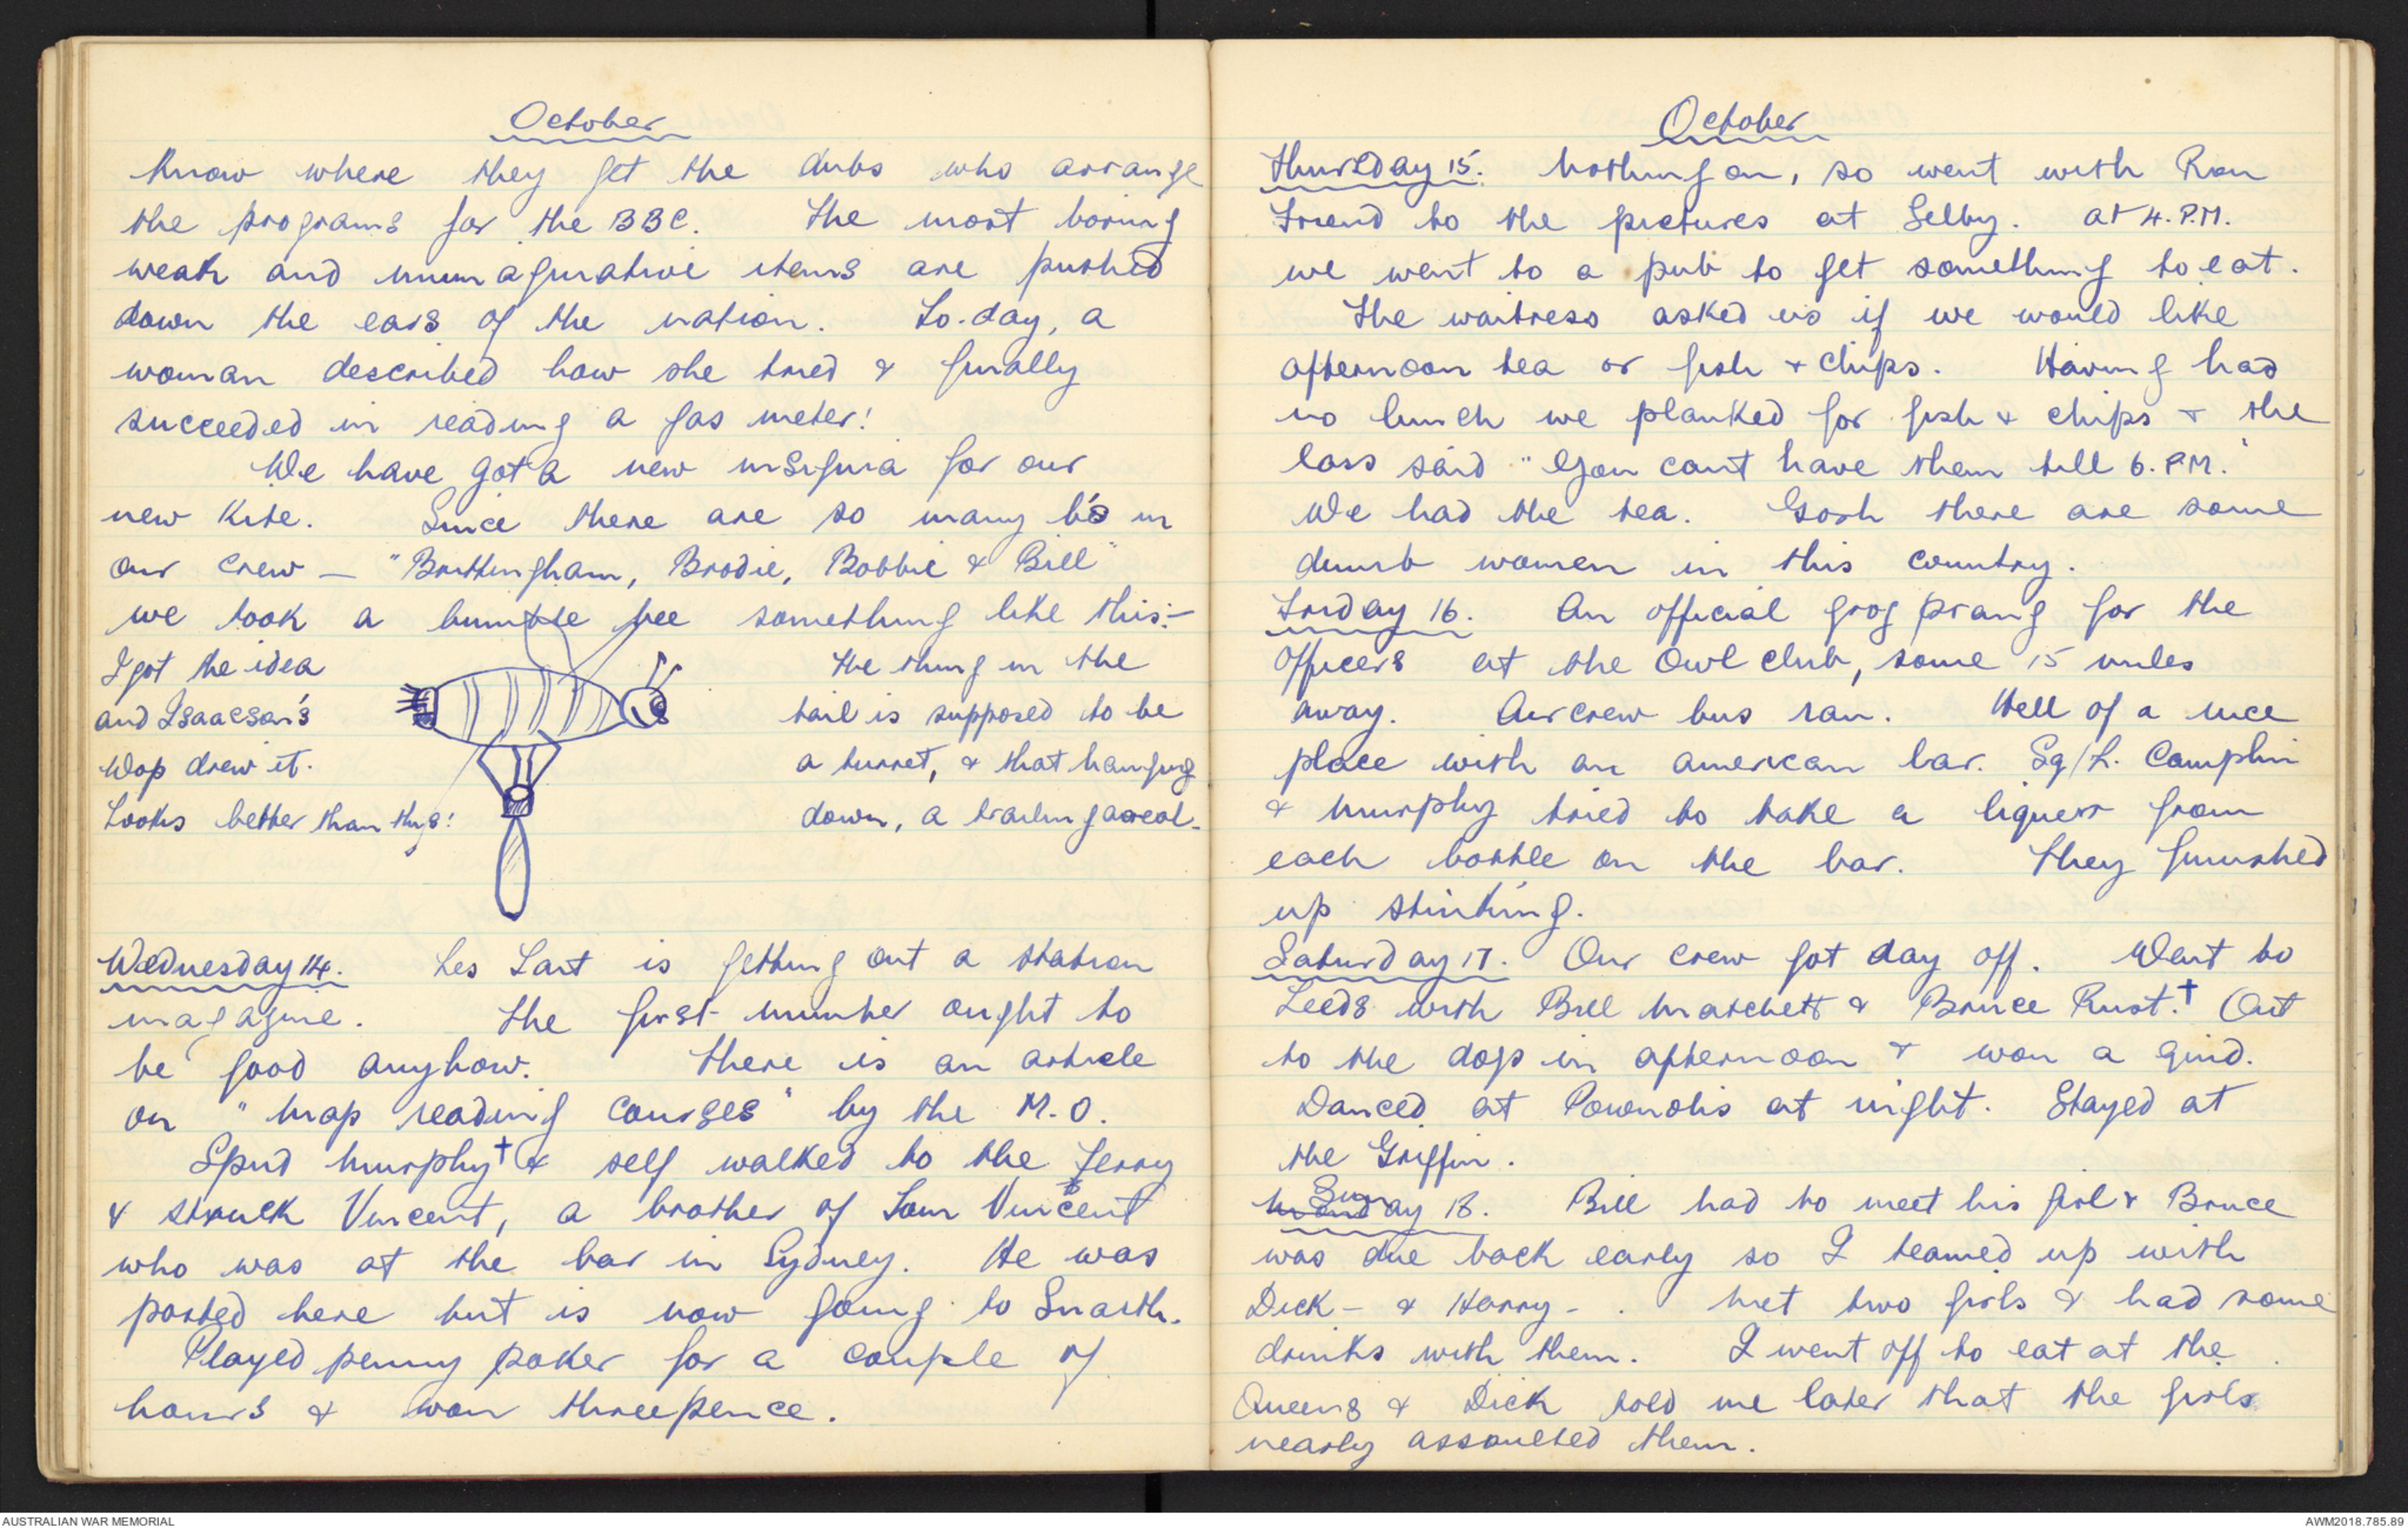 October
Know where they get the dubs who arrange
the programs for the BBC. The most boring
weak and unimaginative items are pushed
down the ears of the nation. To.day, a
woman described how she tried & finally
succeeded in reading a gas meter!
We have got a new insignia for our
new Kite. Since there are so many b's in
our crew — "Brittingham, Brodie, Bobbie & Bill"
we took a bumble bee something like this:-
I got the idea
and Isaacson's
Wop drew it.
Looks better than this!
The thing in the
tail is supposed to be
a turret, & that hanging
down, a trailing aereal.
Wednesday 14. Les Last is getting out a station
magazine. The first number ought to
be good anyhow. There is an article
on "Map reading courses" by the M.O.
Spud Murphy† & self walked to the Ferry
& struck Vincent, a brother of Tom Vincent
who was at the bar in Sydney. He was
posted here but is now going to Snaith.
Played penny poker for a couple of
hours & won threepence.
October
Thursday 15. Nothing on, so went with Ron
Friend to the pictures at Selby. At 4. P.M.
we went to a pub to get something to eat.
The waitress asked us if we would like
afternoon tea or fish & chips. Having had
no lunch we planked for fish & chips & the
lass said "You cant have them till 6. P.M."
We had the tea. Gosh there are some
dumb women in this country.
Friday 16. An official grog prang for the
officers at the Owl club, some 15 miles
away. Aircrew bus ran. Hell of a nice
place with an american bar. Sq/L. Camplin
& Murphy tried to take a liquer from
each bottle on the bar. They finished
up stinking.
Saturday 17. Our crew got day off. Went to
Leeds with Bill Matchett & Bruce Rust.† Out
to the dogs in afternoon & won a quid.
Danced at Pownolls at night. Stayed at
the Griffin.
Sunday 18. Bill had to meet his girl & Bruce
was due back early so I teamed up with
Dick - & Harry - . Met two girls & had some
drinks with them. I went off to eat at the
Queens & Dick told me later that the girls
nearly assaulted them.
AUSTRALIAN WAR MEMORIAL
AWM2018.785.89